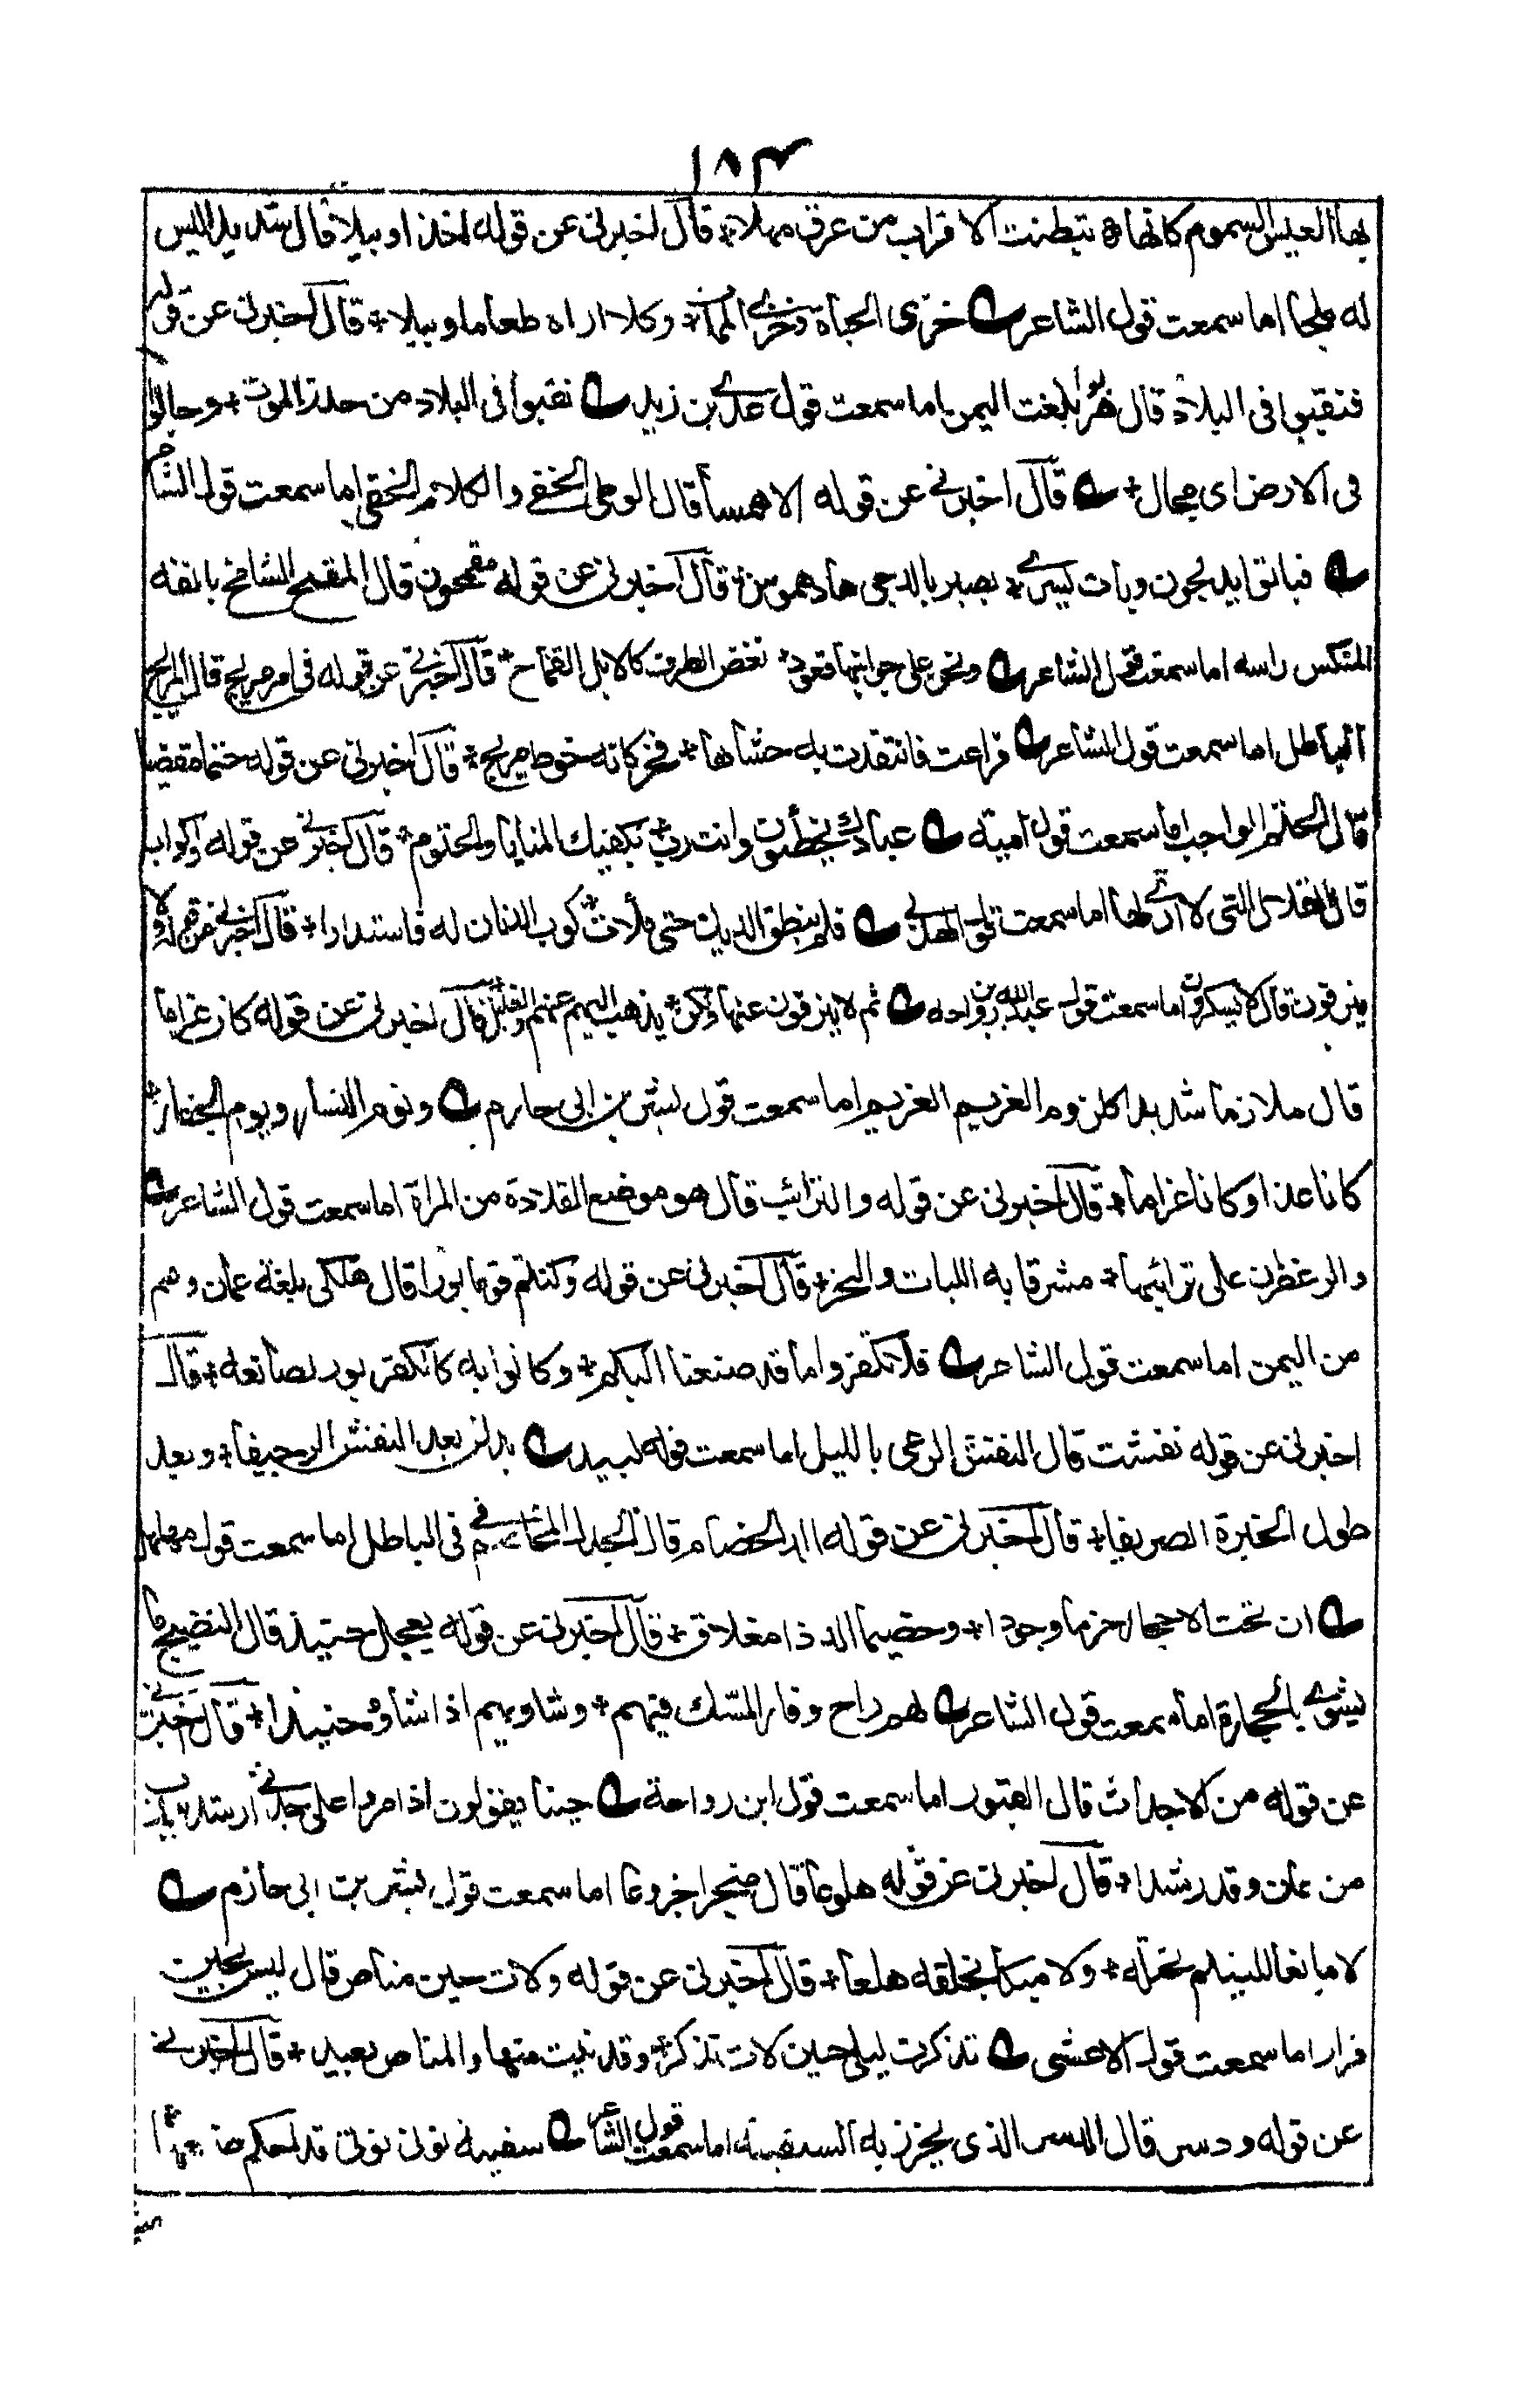 ١٨٣
بها العيس السموم كانها تبطنت الاقراب من عرق مهلا قال اخبرنى عن قوله اخذا وبيلا قال شديدا ليس
له ملجا اما سمعت قول الشاعر خزى الحياة وخزى الممات وكلا اراه طعاما وبيلا قال اخبرنى عن قوله
فنقبوا فى البلاد قال هربوا بلغت اليمن اما سمعت قول عدى بن زيد نقبوا فى البلاد من حذر الموت وجالوا
فى الارض اى مجال قال اخبرنى عن قوله الا همسا قال الوطى الخفى والكلام الخفى اما سمعت قول الشاعر
فباتوا يدلجون وبات يسرى بصير بالدجى هاد هموس قال اخبرنى عن قوله مقمحون قال المقمح الشامخ بانفه
المنكس راسه اما سمعت قول الشاعر ونحن على جوانبها قعود نغض الطرف كالابل القماح قال اخبرنى عن قوله فى امر مريج قال المريج
الباطل اما سمعت قول الشاعر فراعت فانتقدت به حشاها فخر كانه خوط مريج قال اخبرنى عن قوله حتما مقضيا
قال الحتم الواجب اما سمعت قول امية عبادك يخطئون وانت رب بكفيك المنايا والحتوم قال اخبرنى عن قوله واكواب
قال القلال التى لا عرى لها اما سمعت قول الهذلى فلم ينطق الديك حتى ملأت كوب الدنان له فاستدارا قال اخبرنى عن قوله ولا
ينزفون قال لا يسكرون اما سمعت قول عبد الله بن رواحه ثم لا ينزفون عنها ولكن يذهب الهم عنهم والغليل قال اخبرنى عن قوله كان غراما
قال ملازما شديدا كلزوم الغريم الغريم اما سمعت قول بشر بن ابى حازم ويوم النسار ويوم الجفار
كانا عذا وكانا غراما قال اخبرنى عن قوله والترائب قال هو موضع القلادة من المراة اما سمعت قول الشاعر
والزعفران على ترائبها مشرقا به اللبات والنحر قال اخبرنى عن قوله وكنتم قوما بورا قال هلكى بلغة عمان وهم
من اليمن اما سمعت قول الشاعر فلا تكفروا ما قد صنعنا اليكم وكانوا به كالكفر بور لصانعه قال
اخبرنى عن قوله نفشت قال النفش الرعى بالليل اما سمعت قوله لبيد بدلن بعد النفش الوجيفا وبعد
طول الخبرة الصريفا قال اخبرنى عن قوله الد الخصام قال الجدل المخاصم فى الباطل اما سمعت قول مهلهل
ان تحت الاحجار حزما وجودا وخصيما الد ذا مغلاق قال اخبرنى عن قوله بعجل حنيذ قال النضيج ما
يشوى بالحجارة اما سمعت قول الشاعر لهم راح وفار المسك فيهم وشاويهم اذا شاؤ حنيذا قال اخبرنى
عن قوله من الاجداث قال القبور اما سمعت قول ابن رواحة حينا يقولون اذا مروا على جدثى ارشده يا رب
من عان وقد رشدا قال اخبرنى عن قوله هلوعا قال ضجرا جزوعا اما سمعت قول بشر بن ابى حازم
لا مانعا لليتيم نحلته ولا مكبا لخلقه هلعا قال اخبرنى عن قوله ولات حين مناص قال ليس بحين
فرار اما سمعت قول الاعشى تذكرت ليلى حين لات تذكر وقد بنت منها والمناص بعيد قال اخبرنى
عن قوله ودسر قال الدسر الذى يخرز به السفينة اما سمعت قول الشاعر سفينة نوتى نوتى قد احكم صنعها